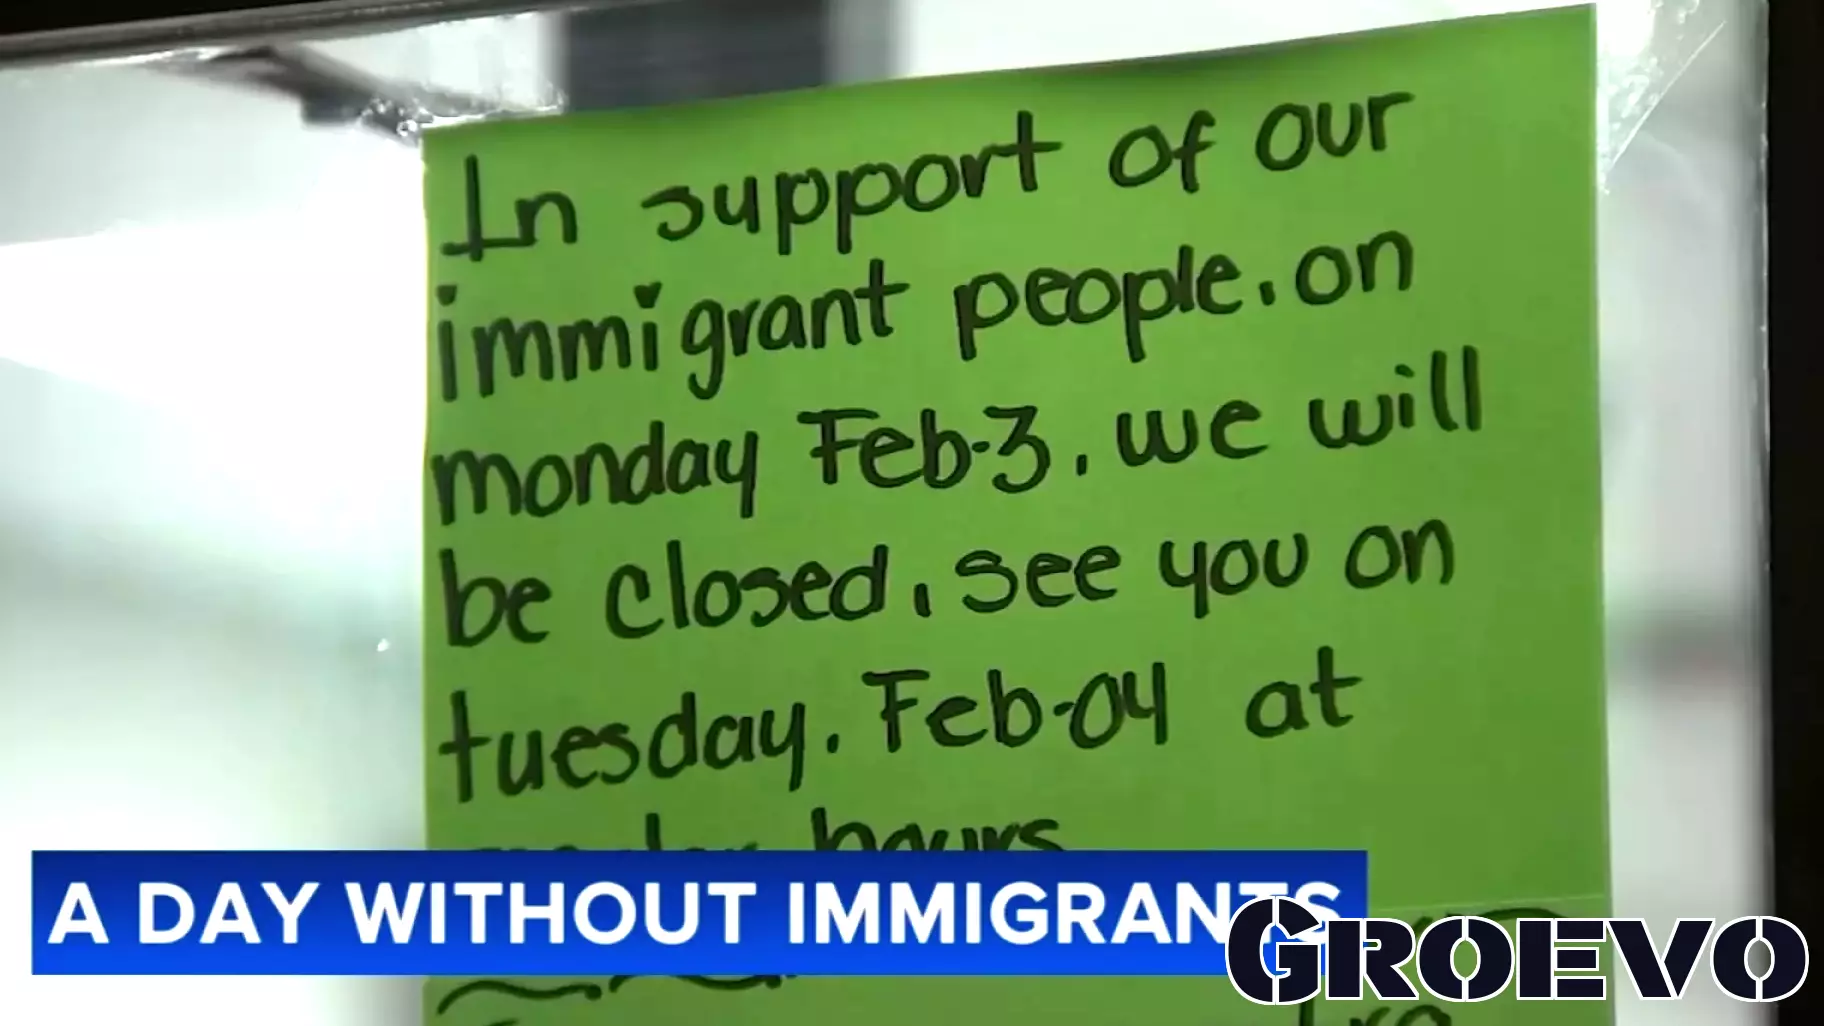 In support of our
immigrant people, on
monday Feb-3, we will
be closed, see you on
tuesday. Feb-04 at
hours
A DAY WITHOUT IMMIGRANTS
GROEVO